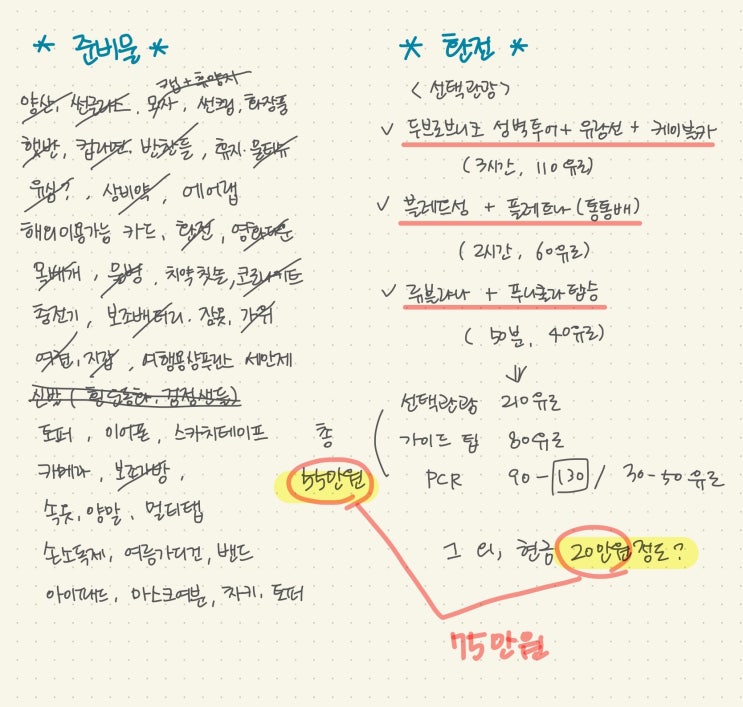 * 준비물 *
캡+휴양지
양산, 썬글라스, 모자, 썬크림, 화장품
햇반, 컵라면, 반찬들, 휴지·물티슈
유심?, 상비약, 에어랩
해외이용가능 카드, 환전, 영화다운
목베개, 물병, 치약칫솔, 코라이트
충전기, 보조배터리, 잠옷, 가위
여권, 지갑, 여행용샴푸린스 세안제
신발 (흰운동화, 검정샌들)
토퍼, 이어폰, 스카치테이프
카메라, 보조가방,
속옷, 양말, 멀티탭
손소독제, 여름가디건, 밴드
아이패드, 마스크여분, 자키, 토퍼
* 환전 *
<선택관광>
✓ 두브로브니크 성벽투어 + 유람선 + 케이블카
(3시간, 110유로)
✓ 블레드성 + 플레트나(통통배)
(2시간, 60유로)
✓ 류블랴나 + 푸니쿨라탑승
(50분, 40유로)
↓
선택관광 210유로
가이드 팁 80유로
PCR 90-130 / 30-50유로
총
55만원
그 외, 현금 20만원정도?
75만원